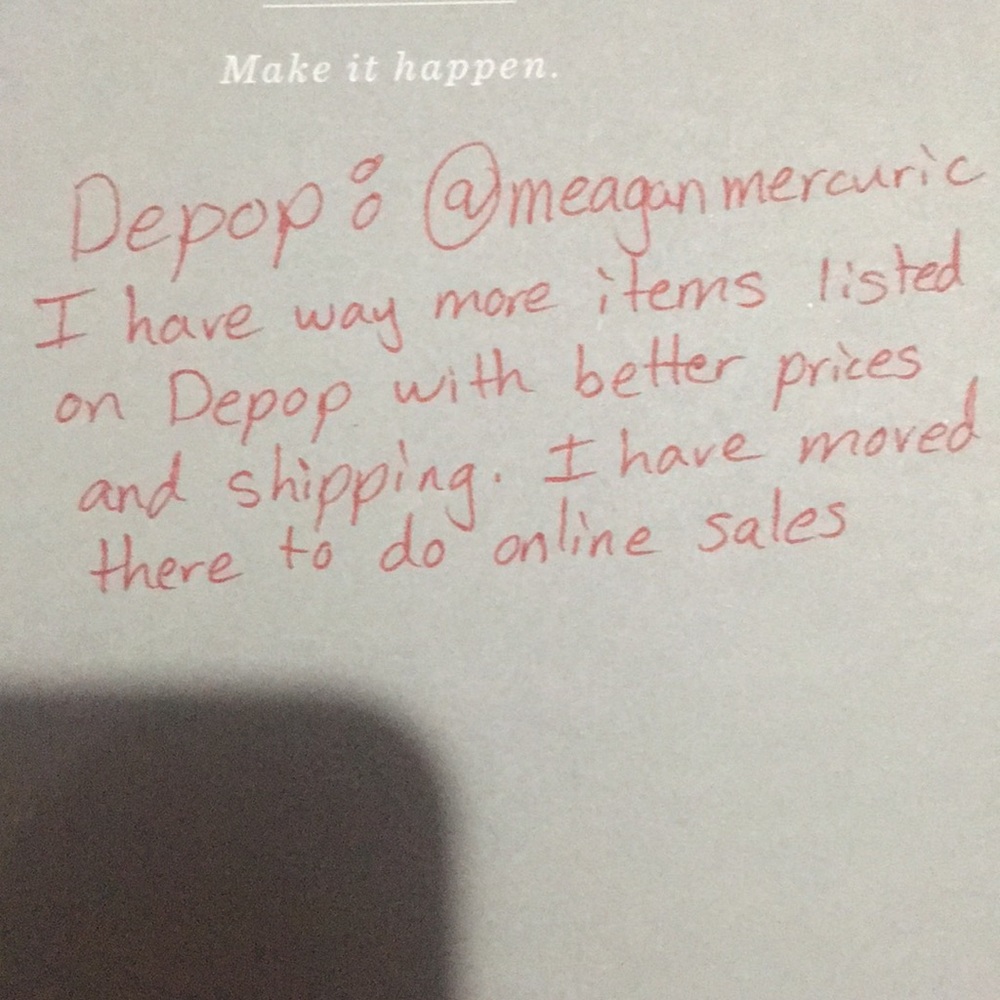 Make it happen.
Depop: @meaganmercuric
I have way more items listed
on Depop with better prices
and shipping. I have moved
there to do online sales